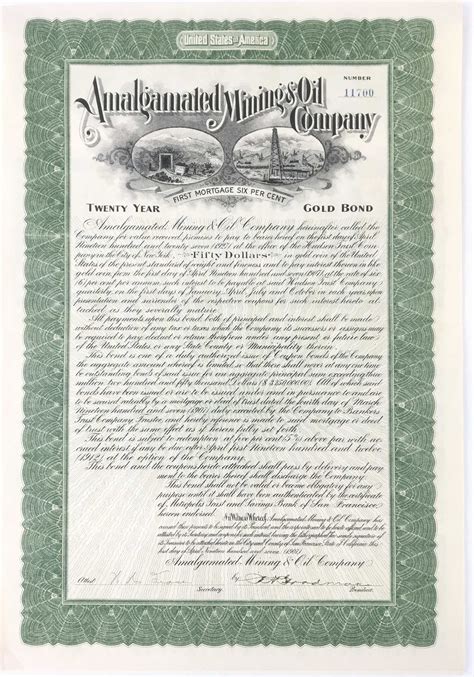 United States of America
NUMBER
11700
Amalgamated Mining & Oil
Company
FIRST MORTGAGE SIX PER CENT
TWENTY YEAR GOLD BOND
Amalgamated Mining & Oil Company hereinafter called the
Company, for value received promises to pay to bearer hereof on the first day of April
Nineteen hundred and twenty seven (1927) at the office of the Hudson Trust Com
pany in the City of New York Fifty Dollars in gold coin of the United
States of the present standard of weight and fineness and to pay interest thereon in like
gold coin from the first day of April Nineteen hundred and seven (1907) at the rate of six
(6) per cent per annum such interest to be payable at said Hudson Trust Company
quarterly on the first days of January, April, July and October in each year upon
presentation and surrender of the respective coupons for such interest hereto at
tached as they severally mature.
All payments upon this bond, both of principal and interest shall be made
without deduction of any tax or taxes which the Company its successors or assigns may
be required to pay deduct or retain therefrom under any present or future law
of the United States, or any State County or Municipality therein.
This bond is one of a duly authorized issue of Coupon bonds of the Company
the aggregate amount thereof is limited, so that there shall never at any one time
be outstanding bonds of said issue for an aggregate principal sum exceeding three
million two hundred and fifty thousand Dollars ($3,250,000.00) All of which said
bonds have been issued or are to be issued under and in pursuance to and are
to be secured ratably by a mortgage or deed of trust dated the day of March
Nineteen hundred and seven (1907) duly executed by the Company to Bankers
Trust Company Trustee, and hereby reference is made to said mortgage or deed
of trust with the same effect as if herein fully set forth
This bond is subject to redemption at five per cent 5% above par with ac
crued interest if any be due after April first Nineteen hundred and twelve
(1912) at the option of the Company.
This bond and the coupons hereto attached shall pass by delivery and pay
ment to the bearer thereof shall discharge the Company.
This bond shall not be valid or become obligatory for any
purpose until it shall have been authenticated by the certificate
of Metropolis Trust and Savings Bank of San Francisco
hereon endorsed.
In Witness Whereof, Amalgamated Mining & Oil Company has
caused these presents to be signed by its President and the corporate seal to be hereto affixed and to be
attested by its Secretary and the engraved signature of
its Treasurer to be attached hereto in the City and County of San Francisco, State of California this
first day of April Nineteen hundred and seven (1907)
Amalgamated Mining & Oil Company
Attest by
Secretary President